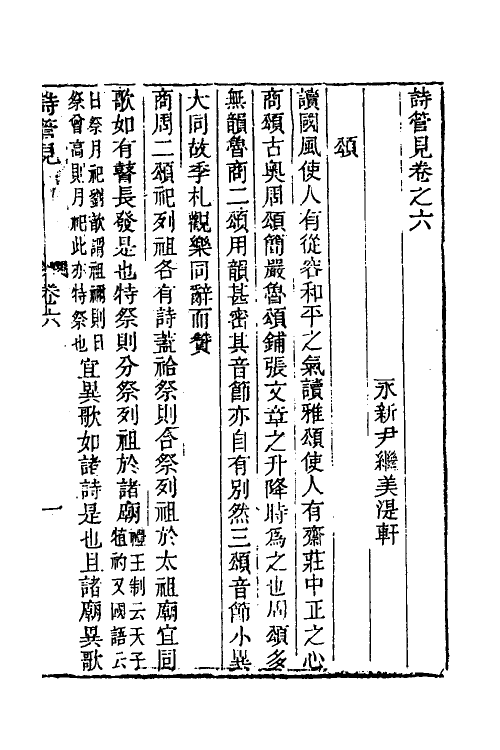 詩管見卷之六
永新尹繼美湜軒
頌
讀國風使人有從容和平之氣讀雅頌使人有齋莊中正之心
商頌古奧周頌簡嚴魯頌鋪張文章之升降時爲之也周頌多
無韻魯商二頌用韻甚密其音節亦自有別然三頌音節小異
大同故季札觀樂同辭而贊
商周二頌祀列祖各有詩蓋祫祭則合祭列祖於太祖廟宜同
歌如有瞽長發是也特祭則分祭列祖於諸廟禮王制云天子
犆礿又國語云
日祭月祀劉歆謂祖禰則日
祭曾高則月祀此亦特祭也宜異歌如諸詩是也且諸廟異歌
詩管見
卷六
一